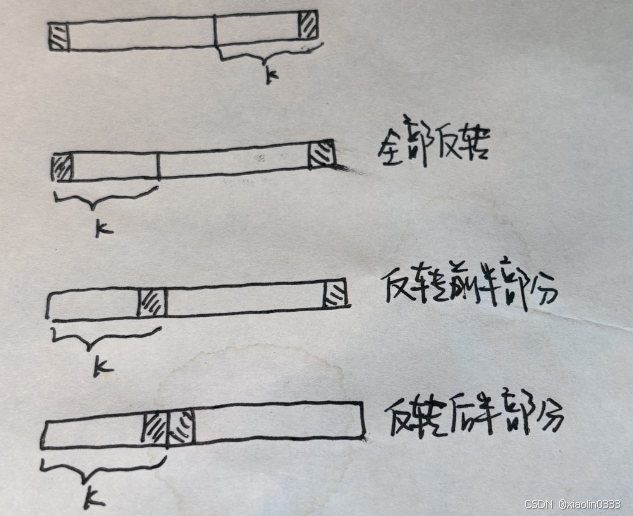 k
全部反转
k
反转前半部分
k
反转后半部分
k
CSDN @xiaolin0333